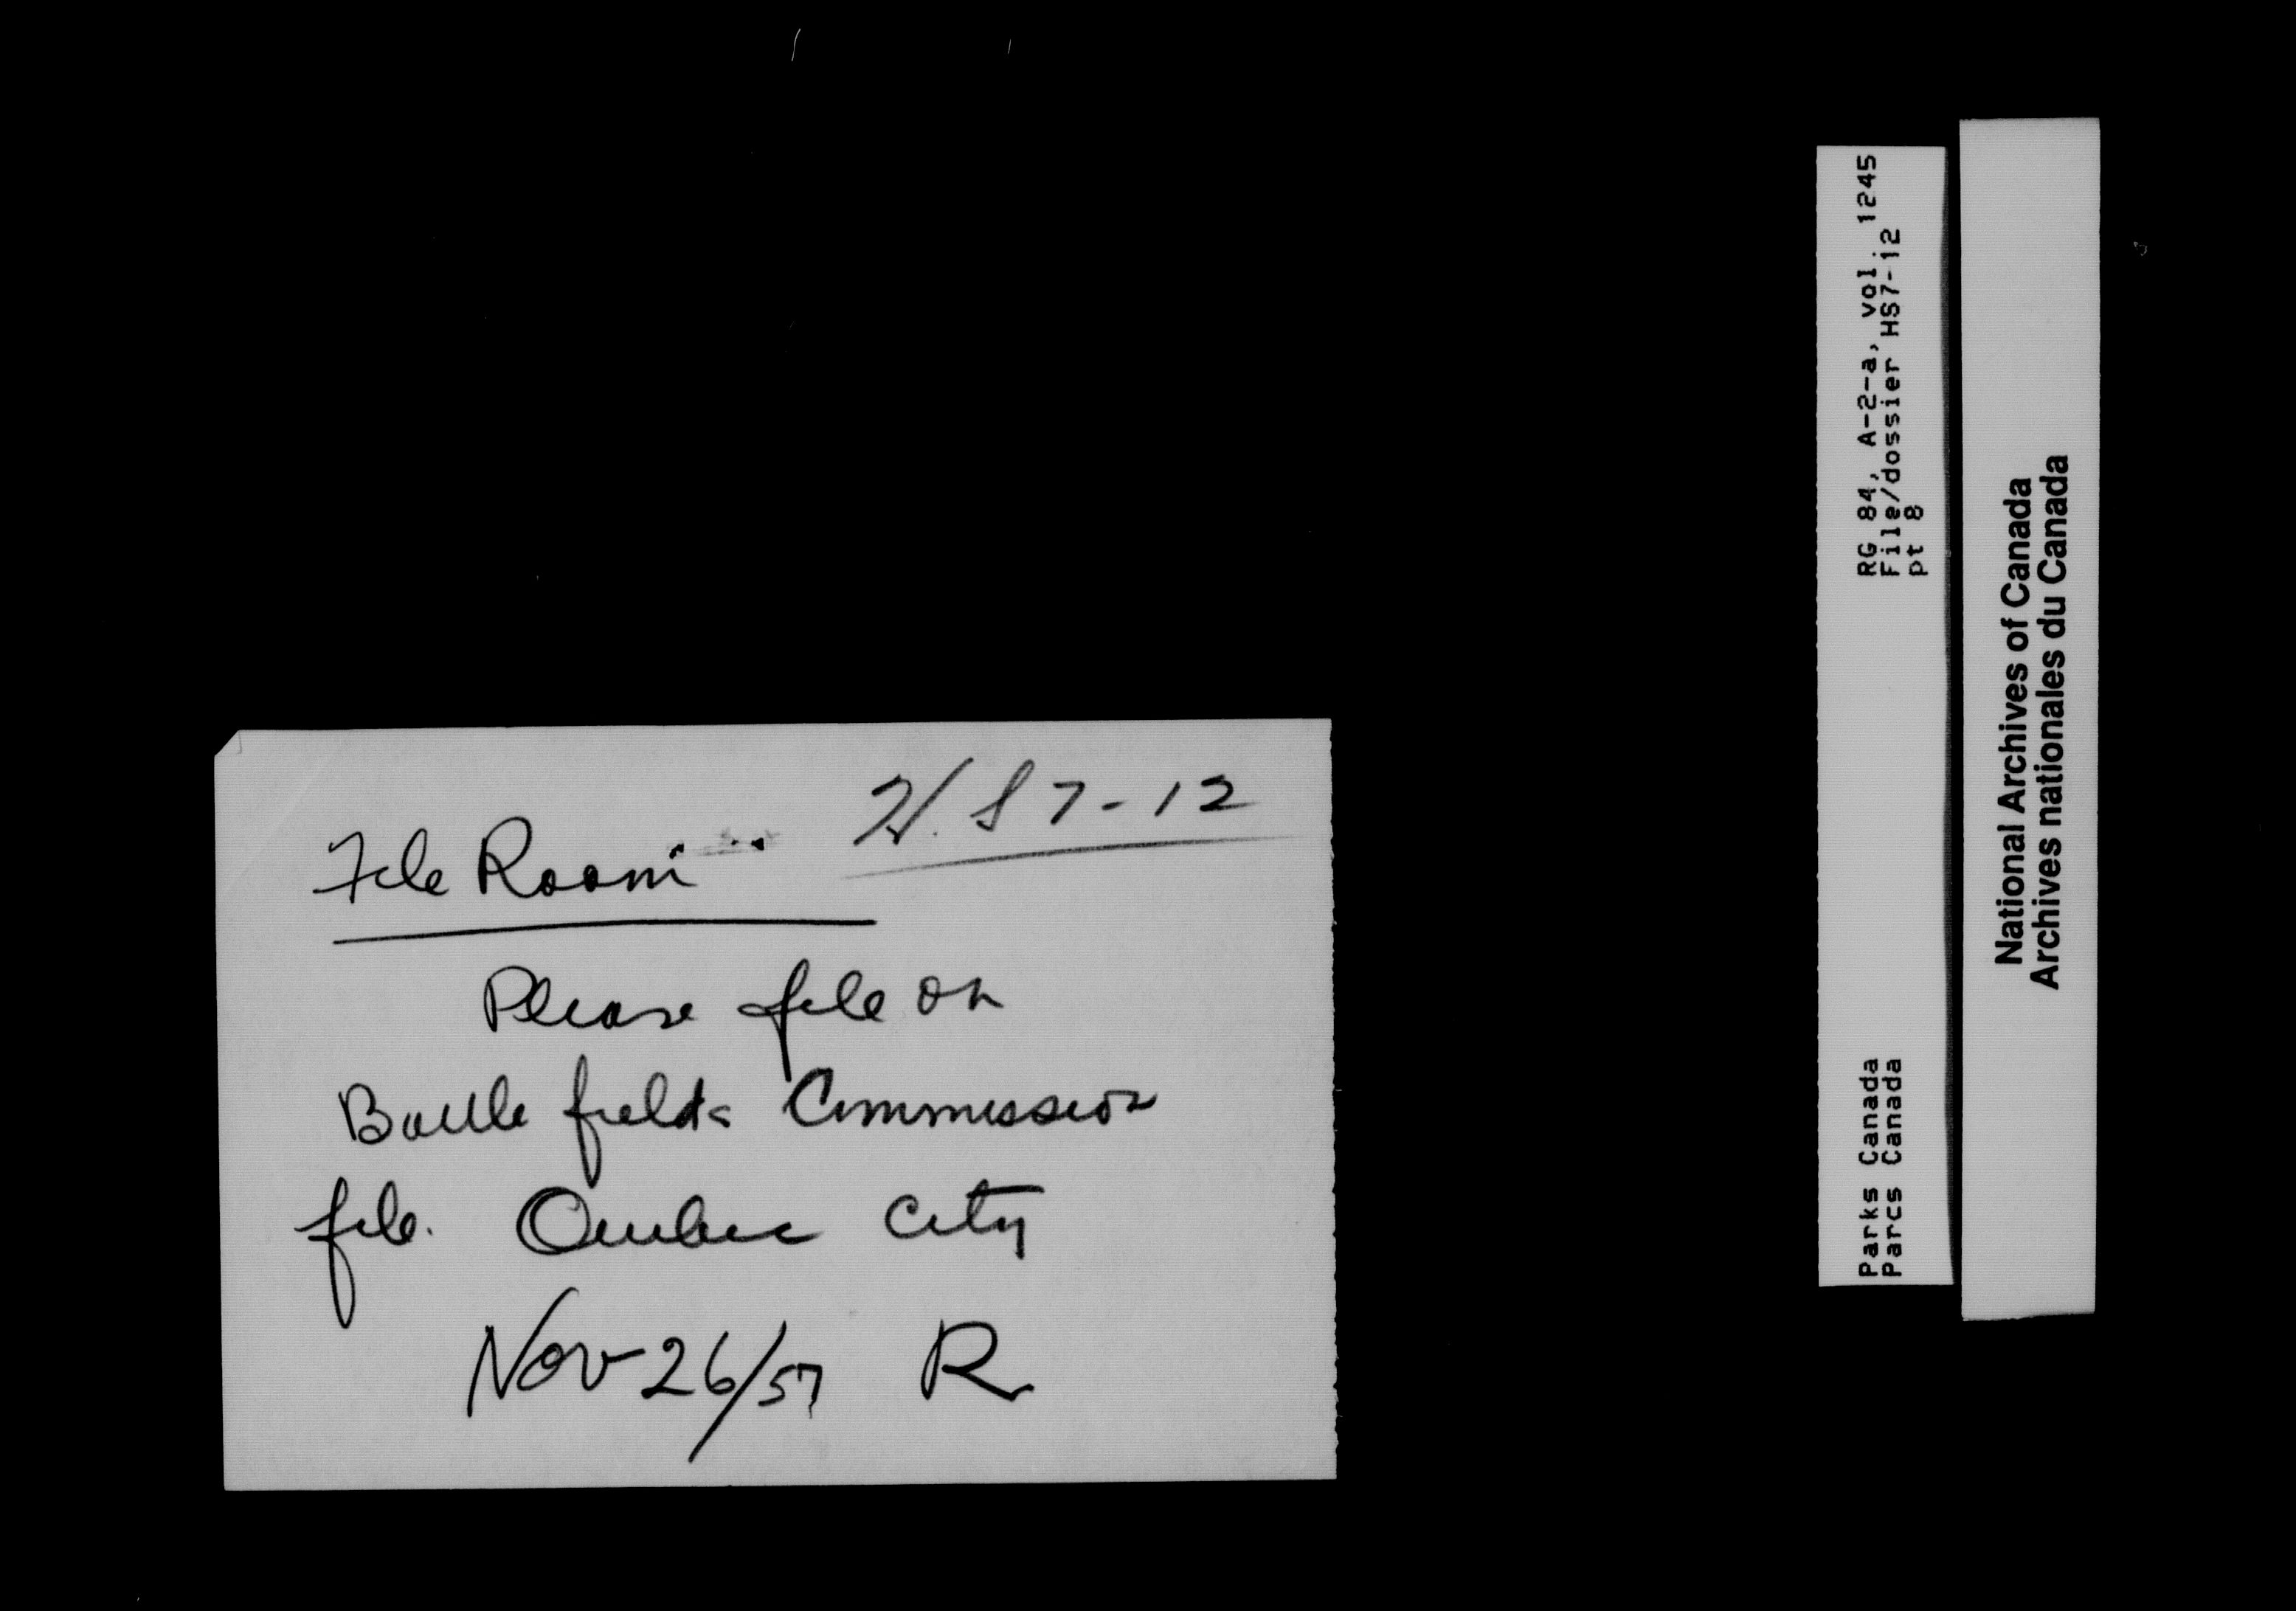 H.S 7-12
File Room
Please file on
Battle fields Commission
file. Quebec City
Nov 26/57 R
RG 84, A-2-a, vol. 1245
File/dossier HS7-12
pt 8
Parks Canada
Parcs Canada
National Archives of Canada
Archives nationales du Canada